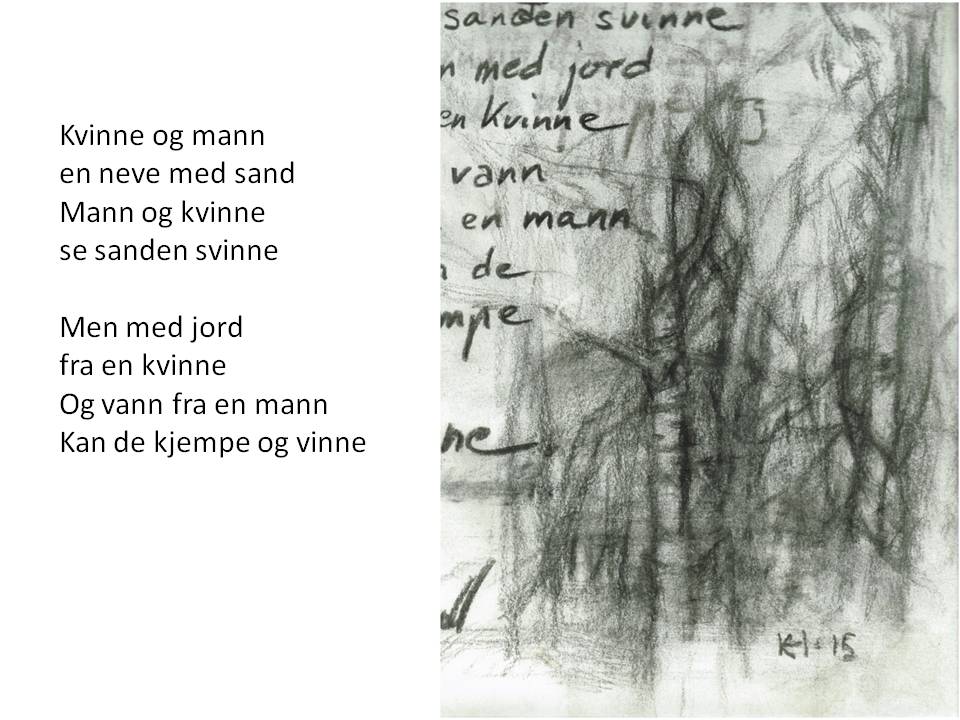 Kvinne og mann
en neve med sand
Mann og kvinne
se sanden svinne
Men med jord
fra en kvinne
Og vann fra en mann
Kan de kjempe og vinne
sanden svinne
n med jord
en kvinne
vann
en mann
de
mpe
ne.